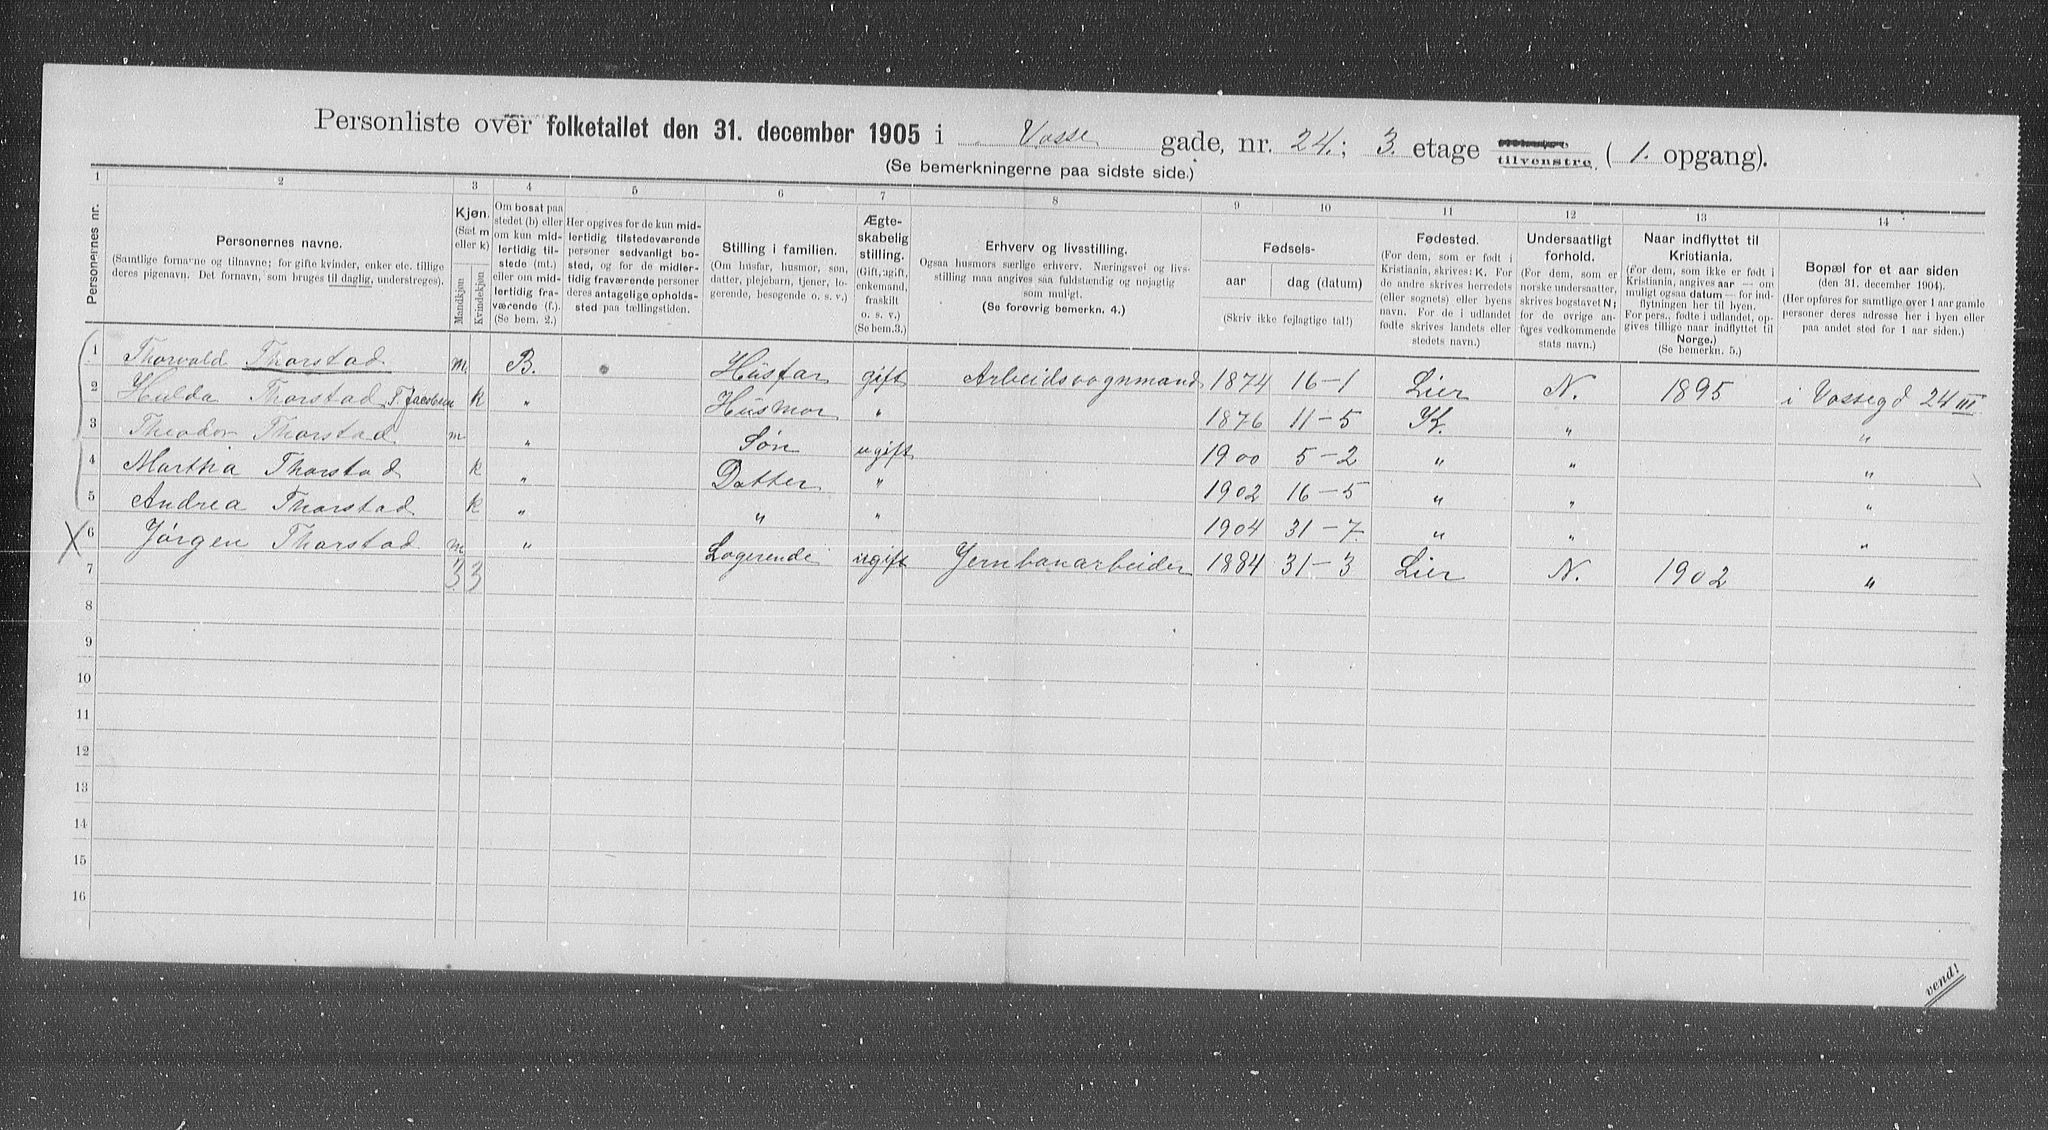 Personliste over folketallet den 31. december 1905 i Vosse gade, nr. 24.; 3. etage tilvenstre. ( 1. opgang).
(Se bemerkningerne paa sidste side.)
1 2 3 4 5 6 7 8 9 10 11 12 13 14
Personernes nr.
Personernes navne.
(Samtlige fornavne og tilnavne; for gifte kvinder, enker etc. tillige
deres pigenavn. Det fornavn, som bruges til daglig, understreges).
Kjøn.
(Sæt m
eller k)
Mandkjøn
Kvindekjøn
Om bosat paa
stedet (b) eller
om kun mid-
lertidig til-
stede (mt.)
eller om mid-
lertidig fra-
værende (f.).
(Se bem. 2.)
Her opgives for de kun mid-
lertidig tilstedeværende
personer sedvanligt bo-
sted, og for de midler-
tidig fraværende personer
deres antagelige opholds-
sted paa tællingstiden.
Stilling i familien.
(Om husfar, husmor, søn,
datter, plejebarn, tjener, lo-
gerende, besøgende o. s. v.)
Ægte-
skabelig
stilling.
(Gift, ugift,
enkemand,
fraskilt
o. s. v.)
(Se bem.3.)
Erhverv og livsstilling.
Ogsaa husmors særlige erhverv. Næringsvei og livs-
stilling maa angives saa fuldstændig og nøjagtig
som muligt.
(Se forøvrig bemerkn. 4.)
Fødsels-
aar dag (datum)
(Skriv ikke fejlagtige tal!)
Fødested.
(For dem, som er født i
Kristiania, skrives: K. For
de andre skrives herredets
(eller sognets) eller byens
navn. For de i udlandet
fødte skrives landets eller
stedets navn.)
Undersaatligt
forhold.
(For dem, som er
norske undersaatter,
skrives bogstavet N;
for de øvrige an-
føres vedkommende
stats navn.)
Naar indflyttet til
Kristiania.
(For dem, som ikke er født i
Kristiania, angives aar — om
muligt ogsaa datum — for ind-
flytningen her til byen.
For pers., fødte i udlandet, op-
gives tillige naar indflyttet til
Norge.)
(Se bemerkn. 5.)
Bopæl for et aar siden
(den 31. december 1904).
(Her opføres for samtlige over 1 aar gamle
personer deres adresse her i byen eller
paa andet sted for 1 aar siden.)
1 Thorvald Thorstad m. B. Husfar gift Arbeidsvognmand 1874 16-1 Lier N. 1895 i Vossegd 24 III
2 Hulda Thorstad f. Jacobsen k " Husmor " 1876 11-5 K. " "
3 Theodor Thorstad m " Søn ugift 1900 5-2 " " "
4 Martha Thorstad k " Datter " 1902 16-5 " " "
5 Andrea Thorstad k " " " 1904 31-7 " " "
X 6 Jørgen Thorstad m " Logerende ugift Jernbanarbeider 1884 31-3 Lier N. 1902 "
7 3 3
8
9
10
11
12
13
14
15
16
vend!